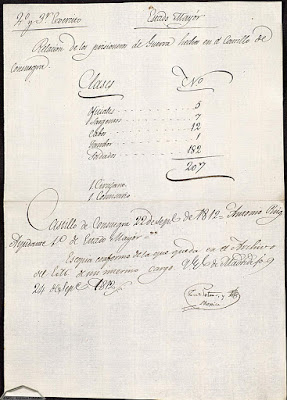 2º y 3er Exercito Estado Mayór
Relación de los prisioneros de Guerra hechos en el Castillo de
Consuegra
Clases Nº
Oficiales 5
Sargentos 7
Cabos 12
Tambor 1
Soldados 182
207
1 Cirujano
1 Comisario
Castillo de Consuegra 22 de Sepe. de 1812 = Antonio Puig
Ayudante 1º de Estado Mayór =
Es copia conforme de la que queda en el Archivo
del de mi mismo cargo. de Madrid
24 de Sepe. 1812